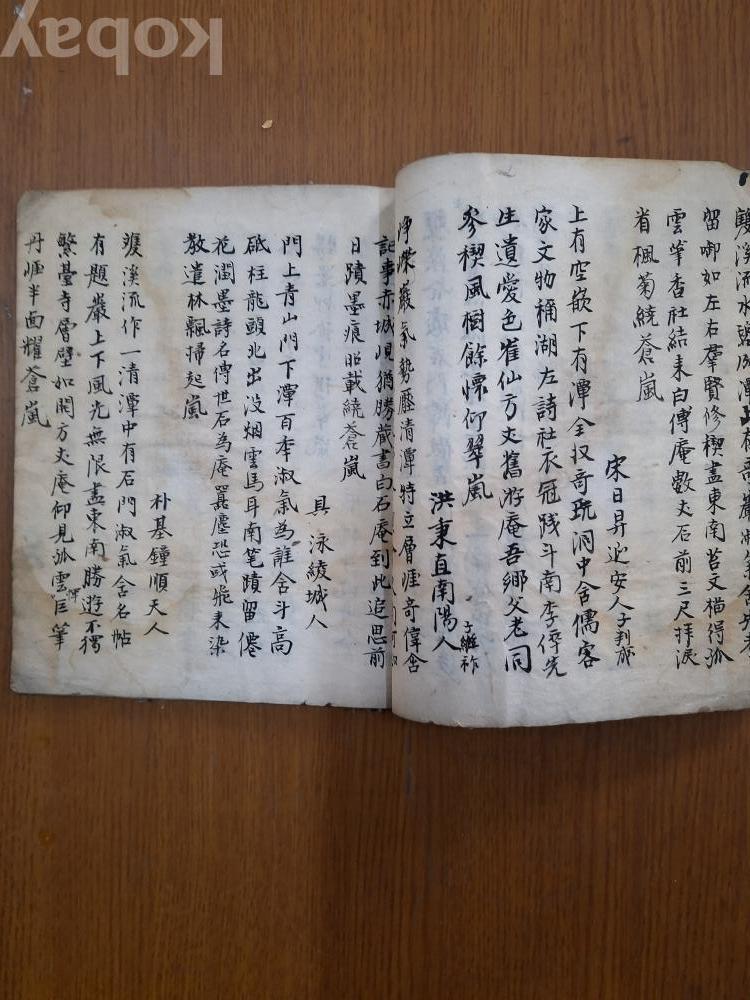 雙溪流水
留
如左右羣賢修稧盡東南苔文楷得孤
雲筆香社結来白傅庵數丈石前三尺拜淚
省楓菊繞蒼嵐
宋日昇延安人子判成
上有空嵌下有潭全収奇玩洞中舍儒客
家文物稱湖左詩社衣冠践斗南李倅先
生遺愛色崔仙方丈舊游庵吾鄉父老同
參稧風樹餘懷仰翠嵐
洪秉直南陽人子維祚
巖氣勢壓清潭特立層崖奇偉舍
記事赤城唄猶勝蔵書白石庵到此追思前
日蹟墨痕昭載繞蒼嵐
具泳綾城人
門上青山門下潭百年淑氣為誰舍斗高
砥柱龍頭北出没烟雲馬耳南笔蹟留僊
花澗墨詩名傳世石為庵嚣塵恐或飛来染
教遣林飄掃起嵐
朴基鐘順天人
雙溪流作一清潭中有石門淑氣舍名帖
有題巖上下風光無限盡東南勝遊不獨
繁臺寺層壁如開方丈庵仰見孤雲巨筆
丹崖半面耀蒼嵐
Kobay